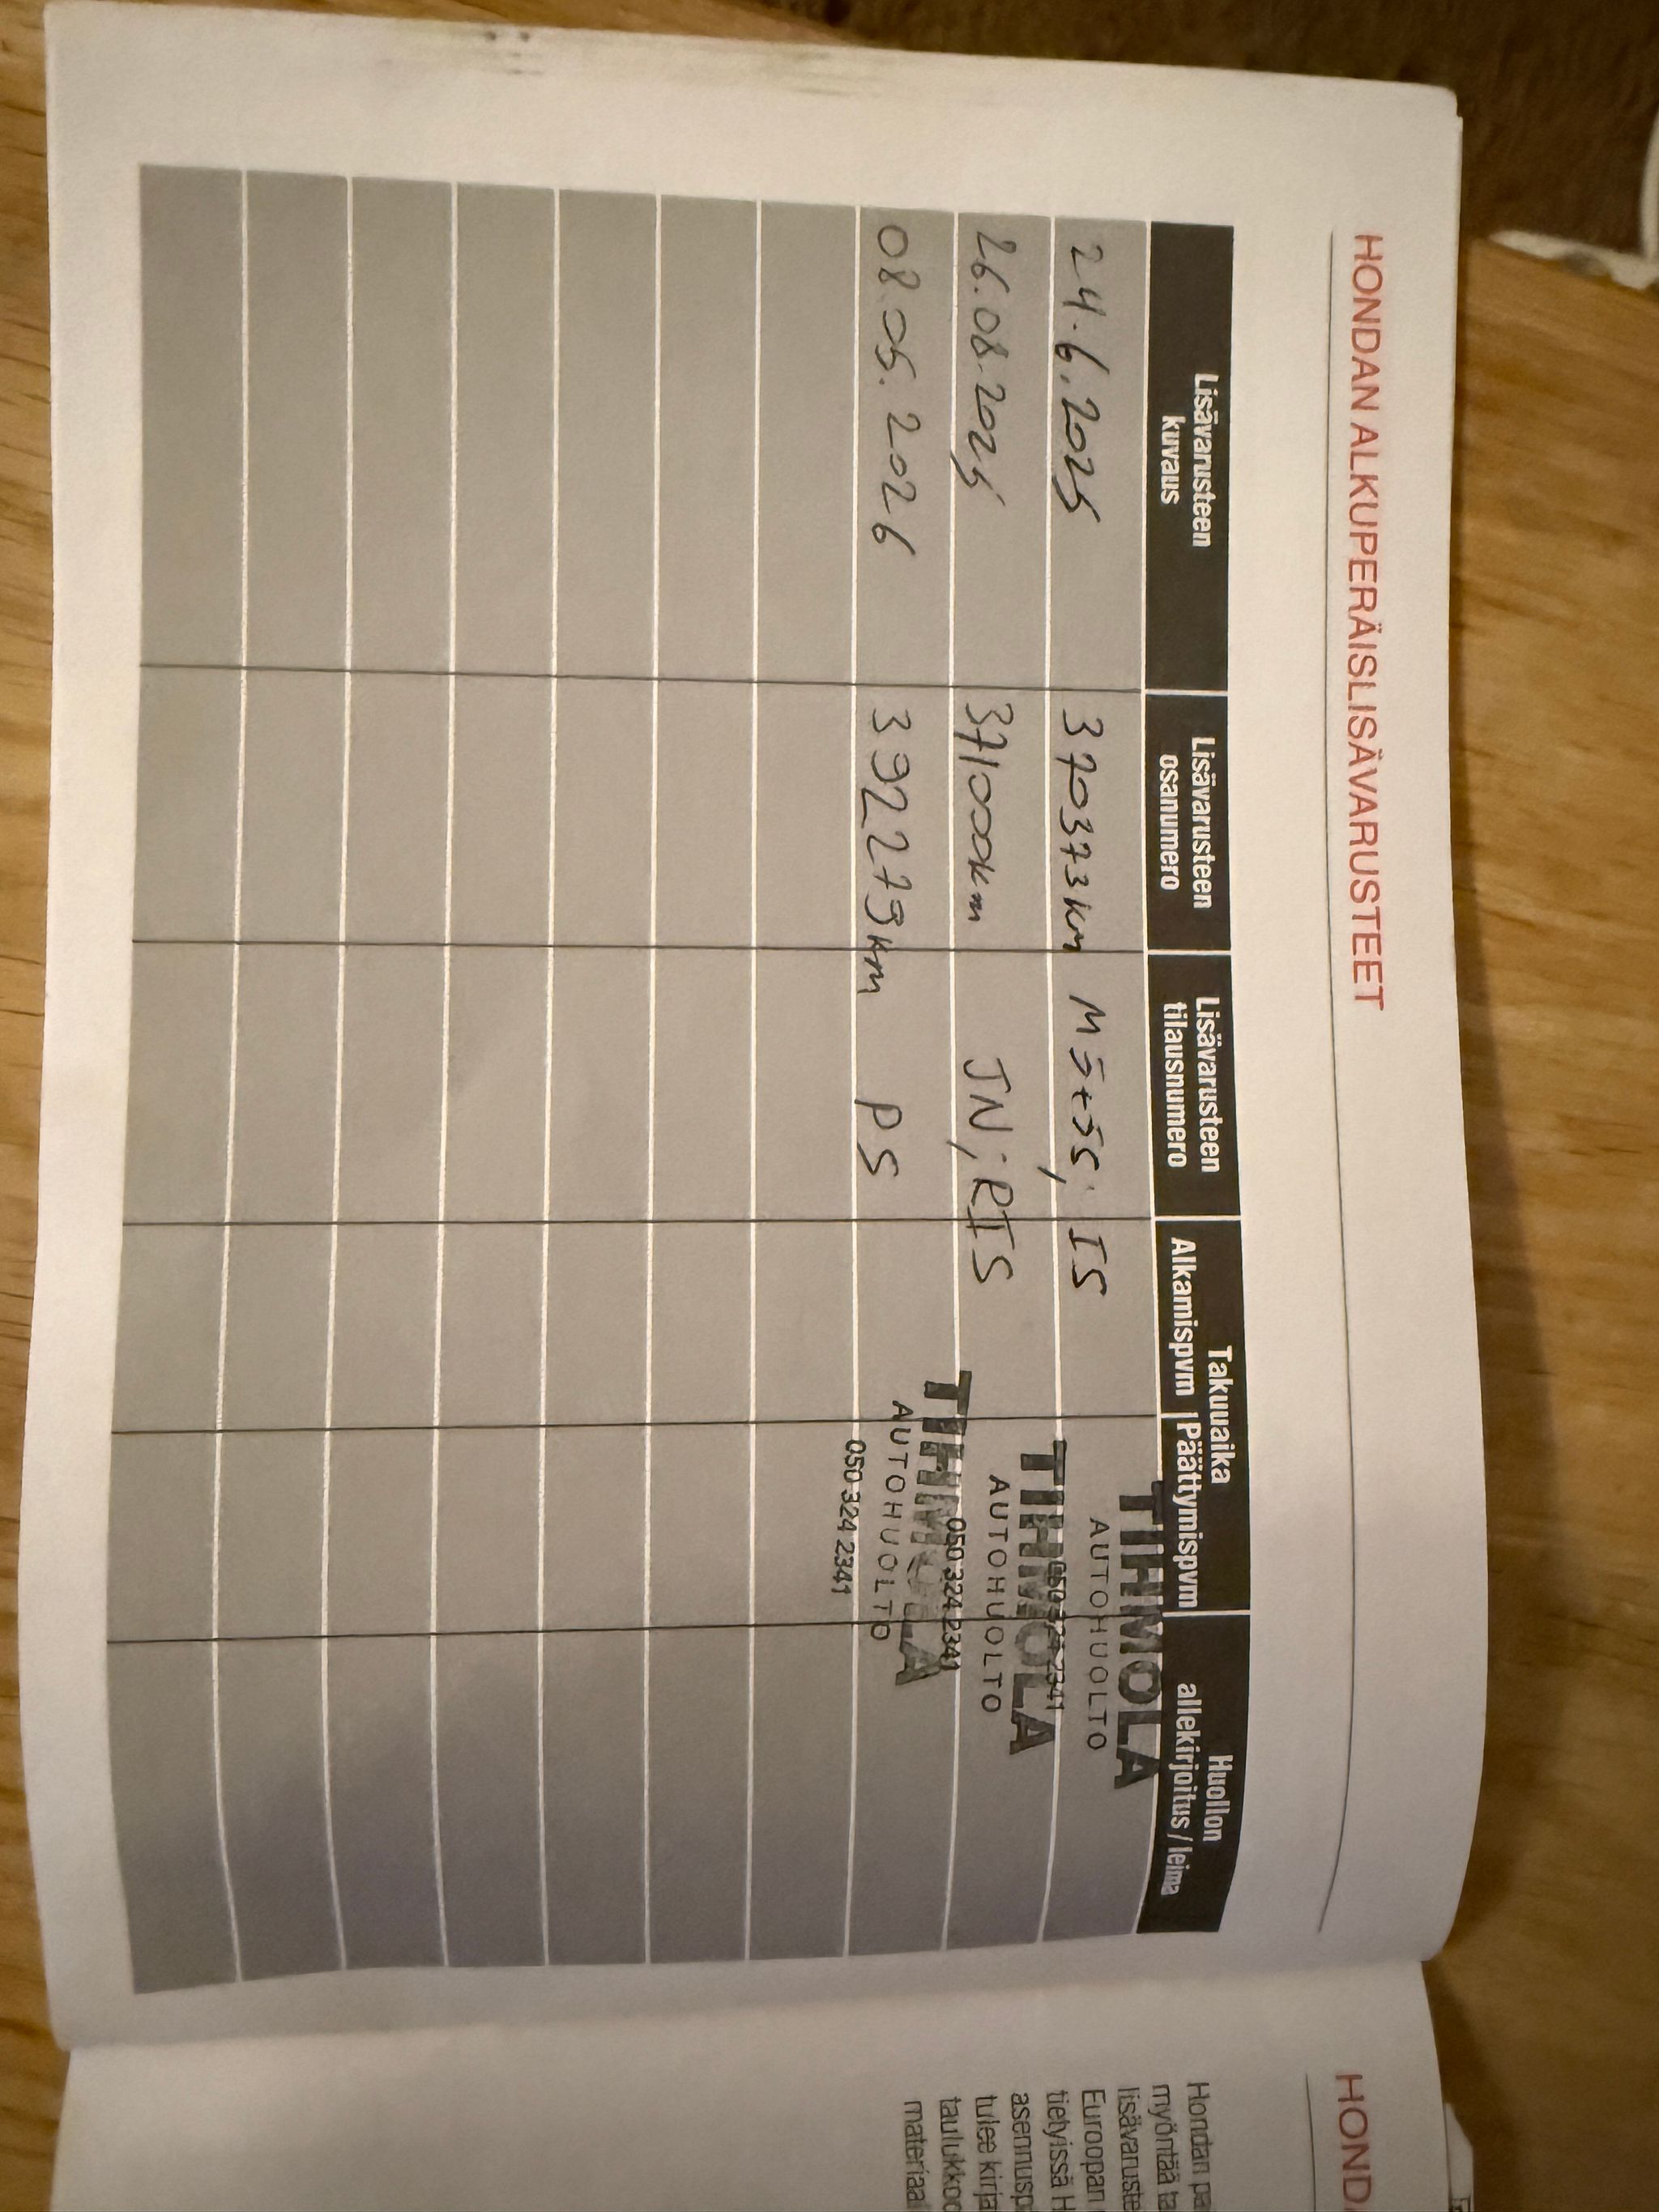 HONDAN ALKUPERÄISLISÄVARUSTEET
Lisävarusteen kuvaus
Lisävarusteen osanumero
Lisävarusteen tilausnumero
Takuuaika
Alkamispvm | Päättymispvm
Huollon allekirjoitus / leima
24.6.2025 370373km Mä+äS; IS
TIHMOLA
AUTOHUOLTO
050 324 2341
26.08.2025 371000km JN; RIS
TIHMOLA
AUTOHUOLTO
050 324 2341
08.05.2026 392279km PS
TIHMOLA
AUTOHUOLTO
050 324 2341
HOND
Hondan
myöntää
Euroopan
tietyissä
tulee